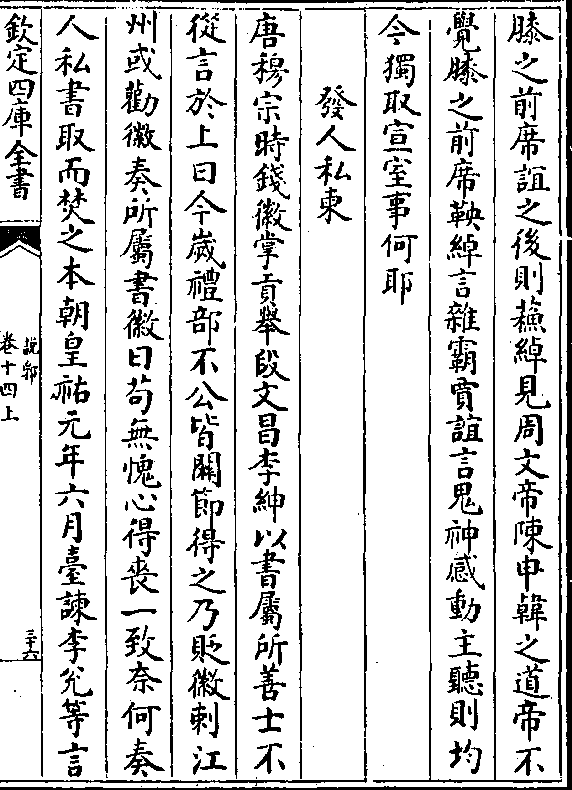 膝之前席誼之後則蘓綽見周文帝陳申韓之道帝不
覺膝之前席鞅綽言雜霸賈誼言鬼神感動主聽則均
今獨取宣室事何耶
發人私柬
唐穆宗時錢徽掌貢舉段文昌李紳以書屬所善士不
從言於上曰今嵗禮部不公皆闗節得之乃貶徽刺江
州或勸徽奏所屬書徽曰茍無愧心得喪一致奈何奏
人私書取而焚之本朝皇祐元年六月臺諫李兊等言
欽定四庫全書
說郛
卷十四上
三十六